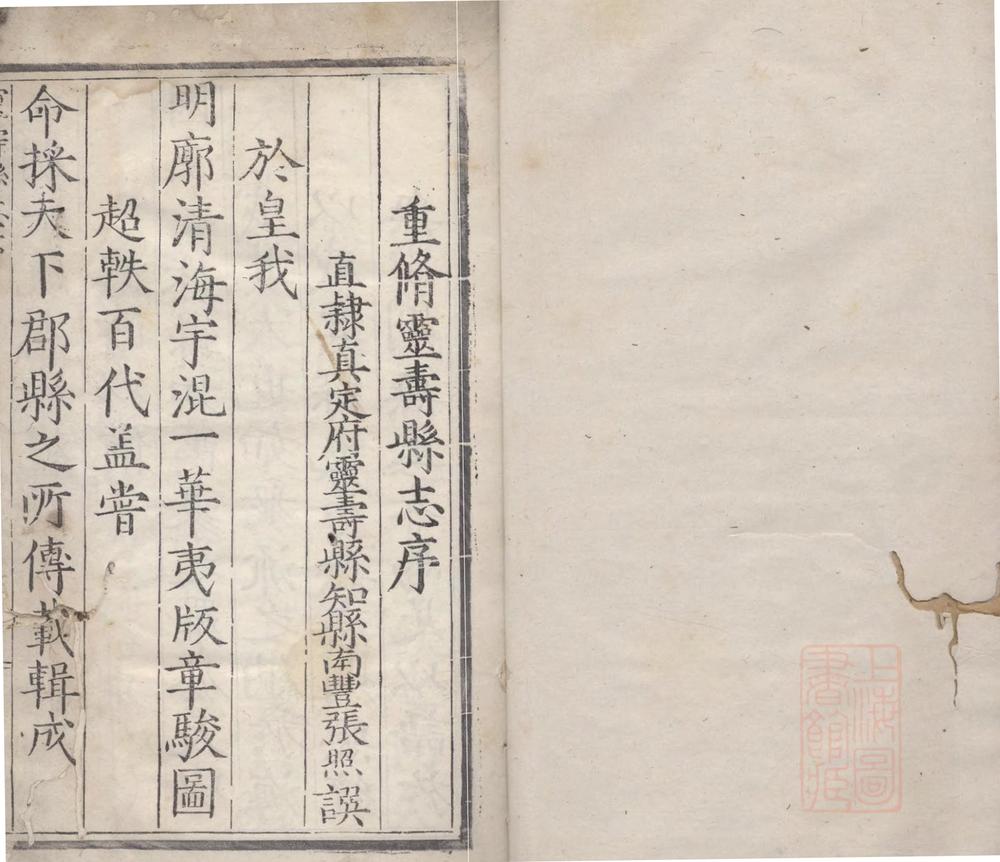 重脩靈壽縣志序
直隸真定府靈壽縣知縣南豐張照譔
於皇我
明廓清海宇混一華夷版章駿圖
超軼百代盖嘗
命採天下郡縣之所傳載輯成
上海圖書館藏